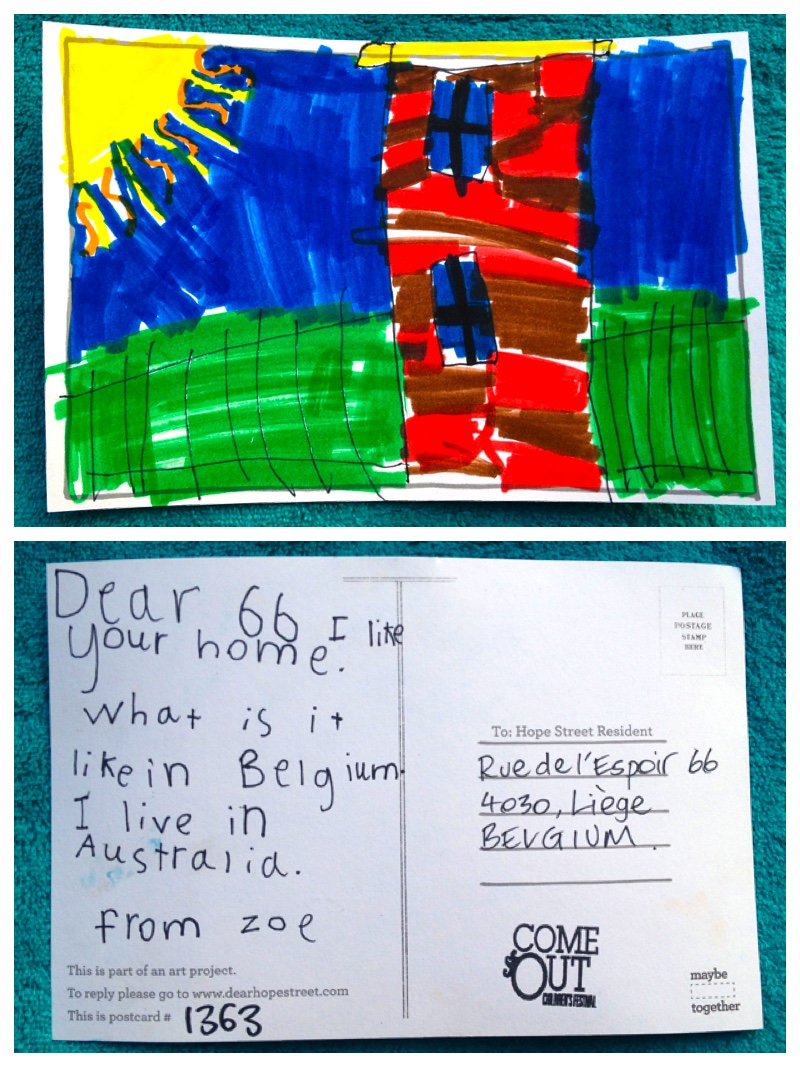 Dear 66 I like
your home.
What is it
like in Belgium.
I live in
Australia.
from zoe
This is part of an art project.
To reply please go to www.dearhopestreet.com
This is postcard # 1363
PLACE
POSTAGE
STAMP
HERE
To: Hope Street Resident
Rue de l'Espoir 66
4030, Liège
BELGIUM.
COME
OUT
CHILDREN'S FESTIVAL
maybe
together